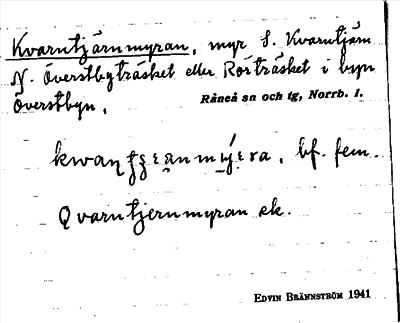 Kvarntjärnmyran, myr S. Kvarntjärn
N. Överstbyträsket eller Rörträsket i byn
Överstbyn.
Råneå sn och tg, Norrb. l.
bf. fem.
Qvarntjernmyran ek.
EDVIN BRÄNNSTRÖM 1941